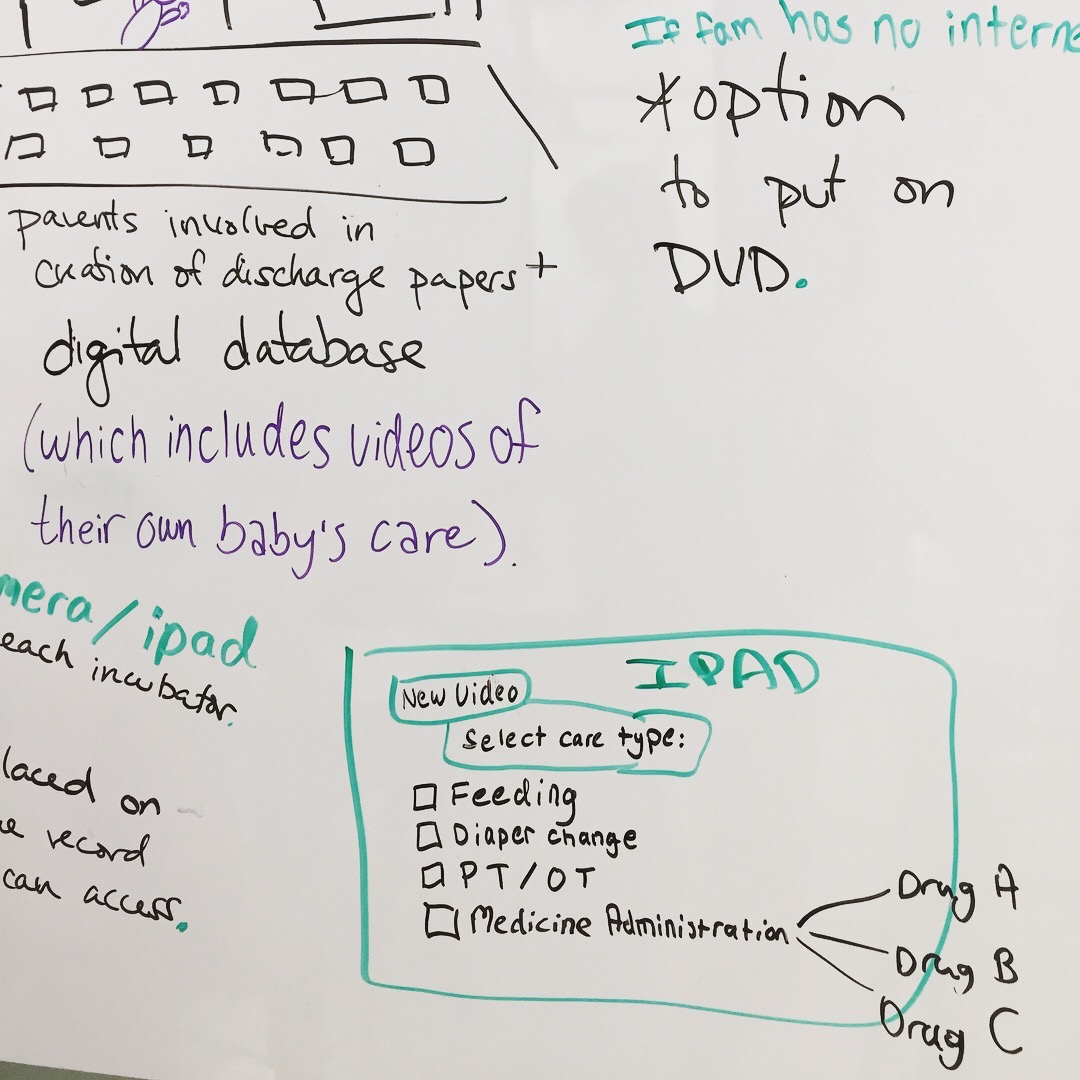 If fam has no
*option
to put on
DVD.
parents involved in
creation of discharge papers +
digital database
(which includes videos of
their own baby's care).
/ipad
each incubator.
on
record
can access.
IPAD
New Video
Select care type:
Feeding
Diaper change
PT/OT
Medicine Administration
Drug A
Drug B
Drug C